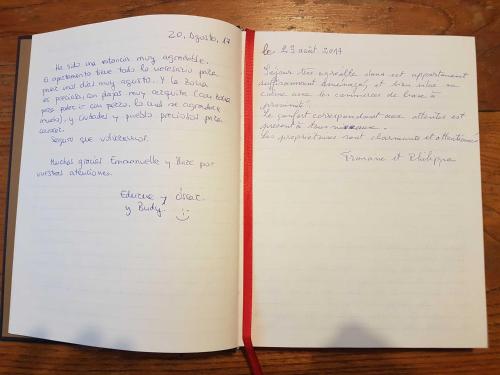 20, Agosto, 17
Ha sido una estancia muy agradable.
El apartamento tiene todo lo necesario para
pasar unos días muy agusto. Y la zona
es preciosa, con playas muy cerquita (con zona
para poder ir con perro, lo cual se agradece
mucho), y ciudades y pueblos preciosos para
conocer.
Seguro que volveremos.
Muchas gracias Emmanuelle y por
vuestras atenciones.
y Óscar
y Budy.
le 29 août 2017
Séjour très agréable dans cet appartement
aménagé, et bien situé au
calme avec les commerces de base à
proximité.
Le confort correspondant aux attentes est
présent à tous niveaux.
Les propriétaires sont charmants et attentionnés
et Philippe